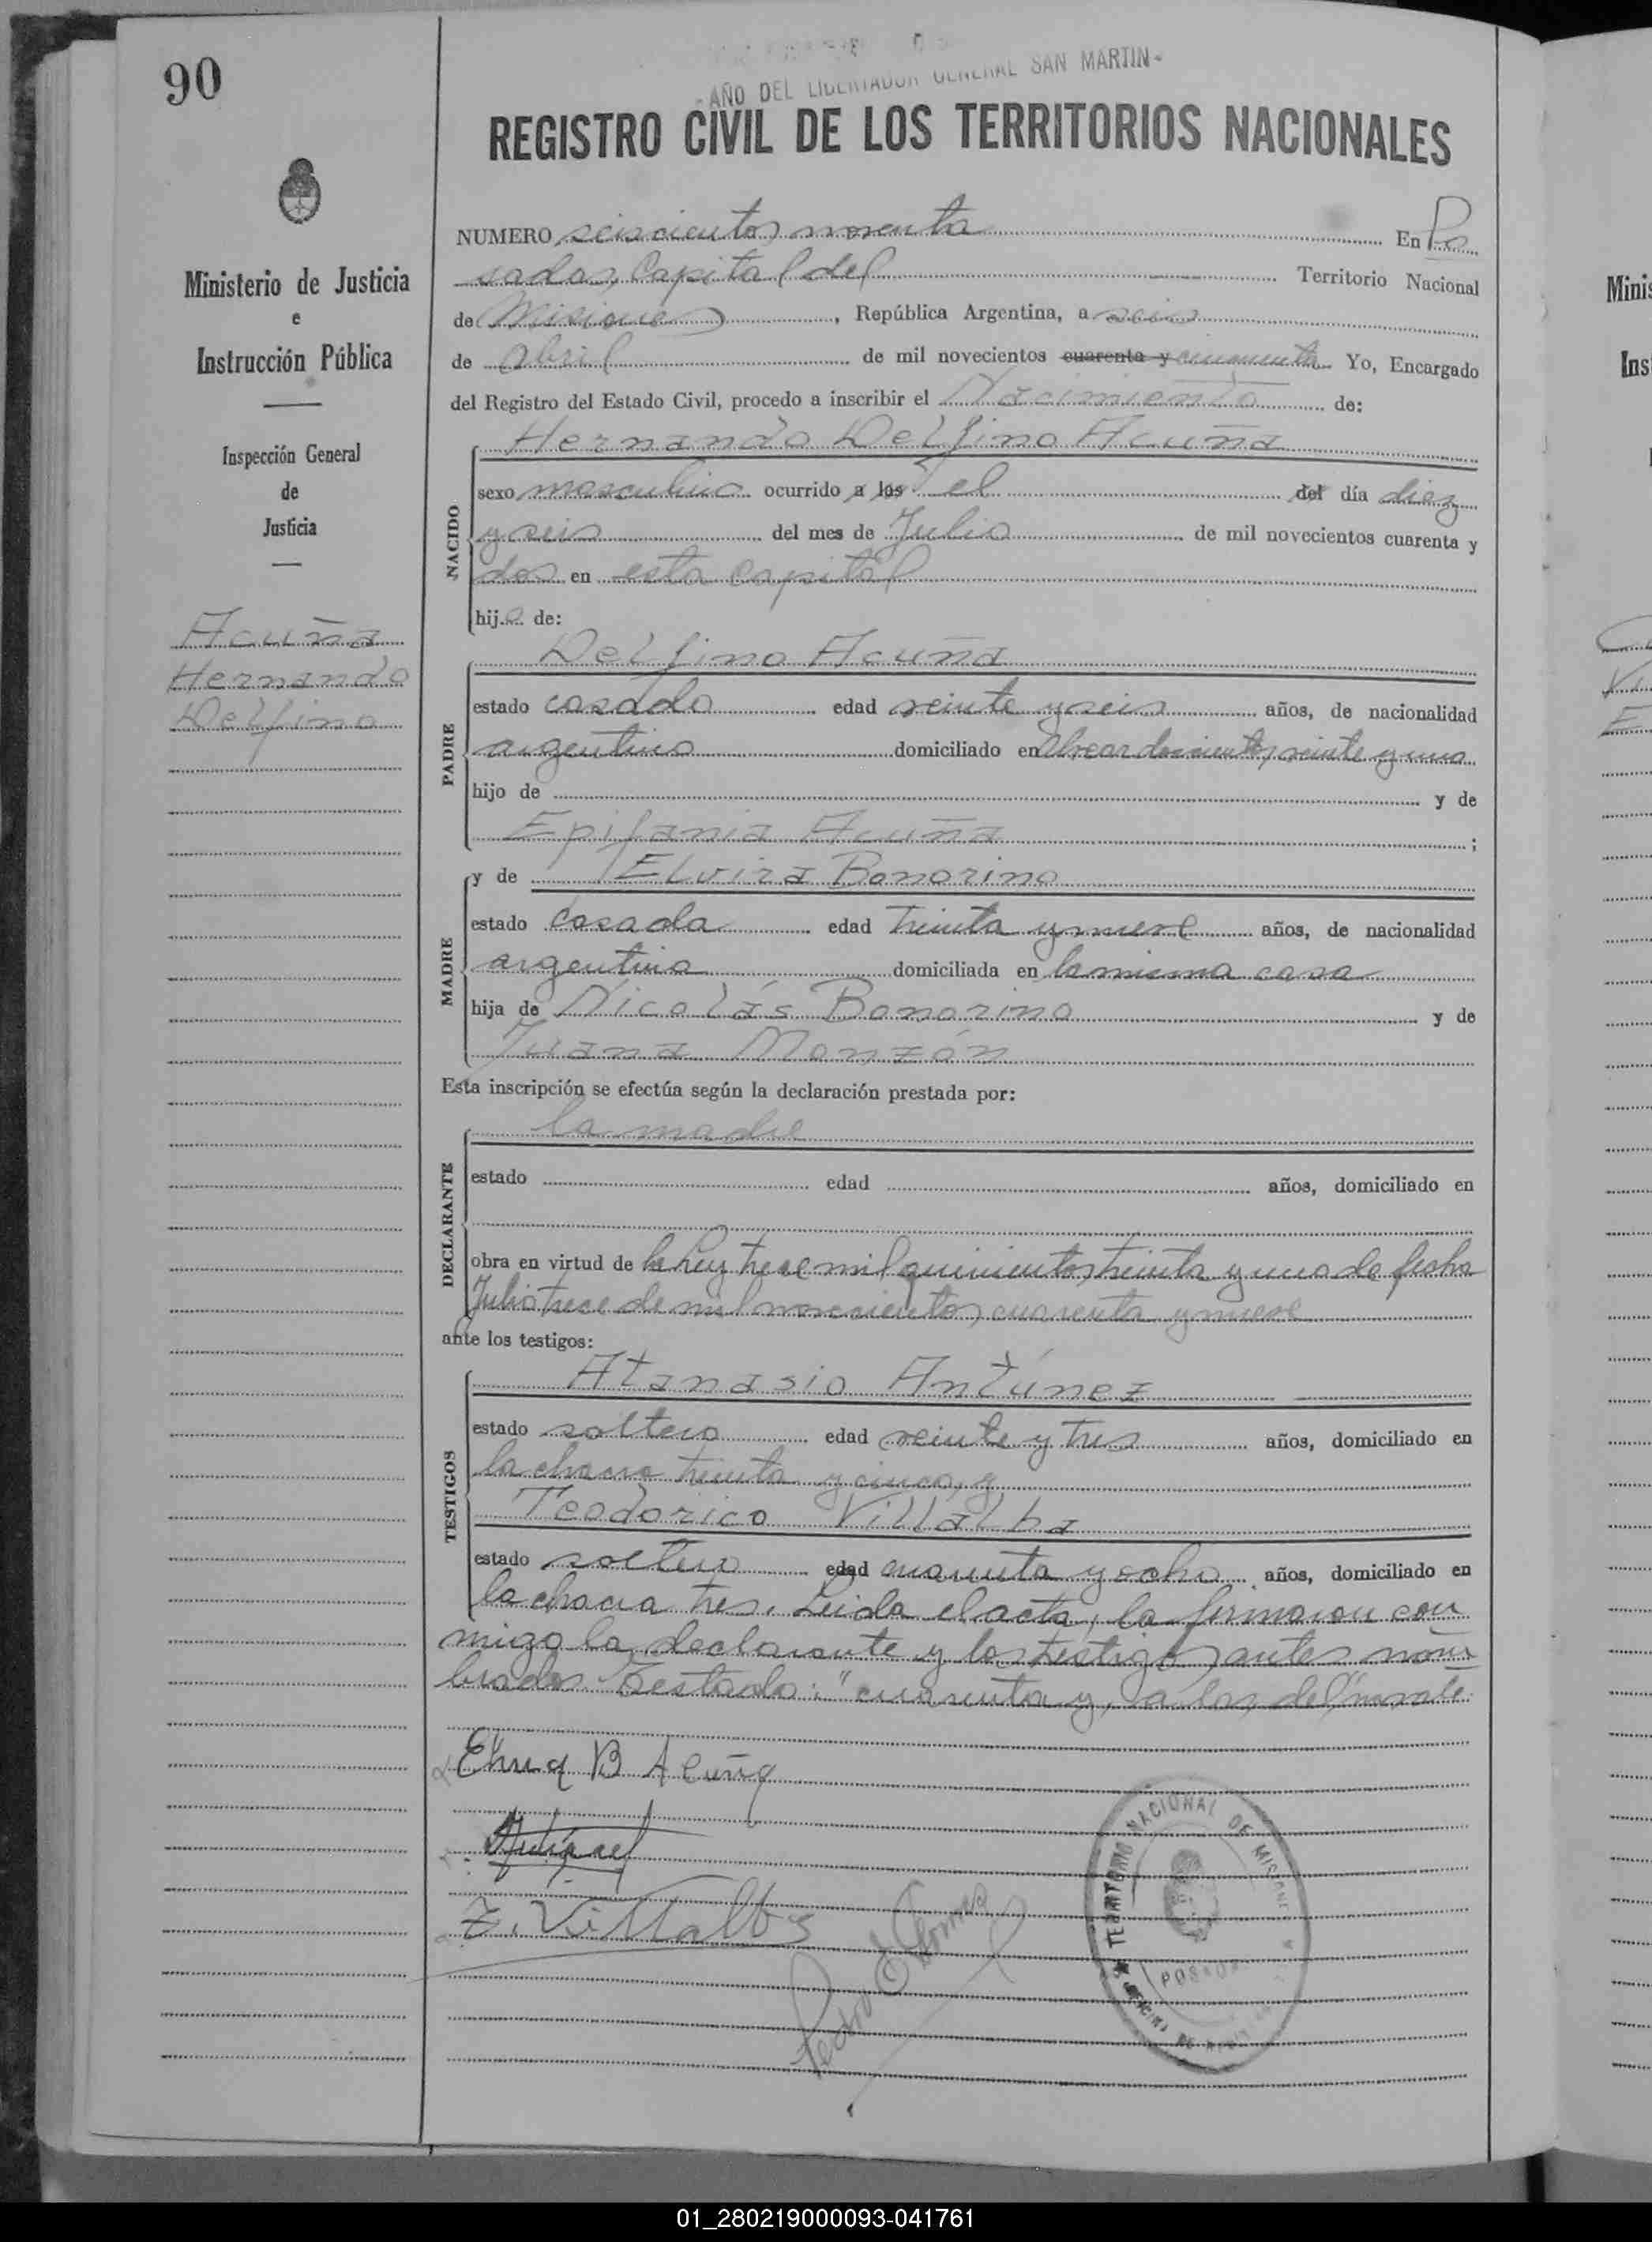 90
- AÑO DEL LIBERTADOR GENERAL SAN MARTIN -
REGISTRO CIVIL DE LOS TERRITORIOS NACIONALES
Ministerio de Justicia
e
Instrucción Pública
Inspección General
de
Justicia
Acuña
Hernando
Delfino
NUMERO seiscientos noventa En Po
sadas, Capital del Territorio Nacional
de Misiones, República Argentina, a seis
de abril de mil novecientos cuarenta y cincuenta Yo, Encargado
del Registro del Estado Civil, procedo a inscribir el Nacimiento de:
NACIDO
Hernando Delfino Acuña
sexo masculino ocurrido a las el del día diez
y seis del mes de Julio de mil novecientos cuarenta y
dos en esta capital
hijo de:
PADRE
Delfino Acuña
estado casado edad veinte y seis años, de nacionalidad
argentino domiciliado en Alvear doscientos veinte y uno
hijo de y de
Epifania Acuña ;
MADRE
y de Elvira Bonorino
estado casada edad treinta y nueve años, de nacionalidad
argentina domiciliada en la misma casa
hija de Nicolás Bonorino y de
Juana Monzón
Esta inscripción se efectúa según la declaración prestada por:
DECLARANTE
la madre
estado edad años, domiciliado en
obra en virtud de la Ley trece mil quinientos treinta y uno de fecha
Julio trece de mil novecientos cuarenta y nueve
ante los testigos:
TESTIGOS
Atanasio Antúnez
estado soltero edad veinte y tres años, domiciliado en
la chacra treinta y cinco, y
Teodorico Villalba
estado soltero edad cuarenta y ocho años, domiciliado en
la chacra tres. Leida el acta, la firmaron con
migo la declarante y los testigos antes nom
brados. Testado: "cuarenta y, a las, del" no vale.
B Acuña
Villalba
Pedro Gomez
TERRITORIO NACIONAL DE MISIONES
POSADAS
01_280219000093-041761